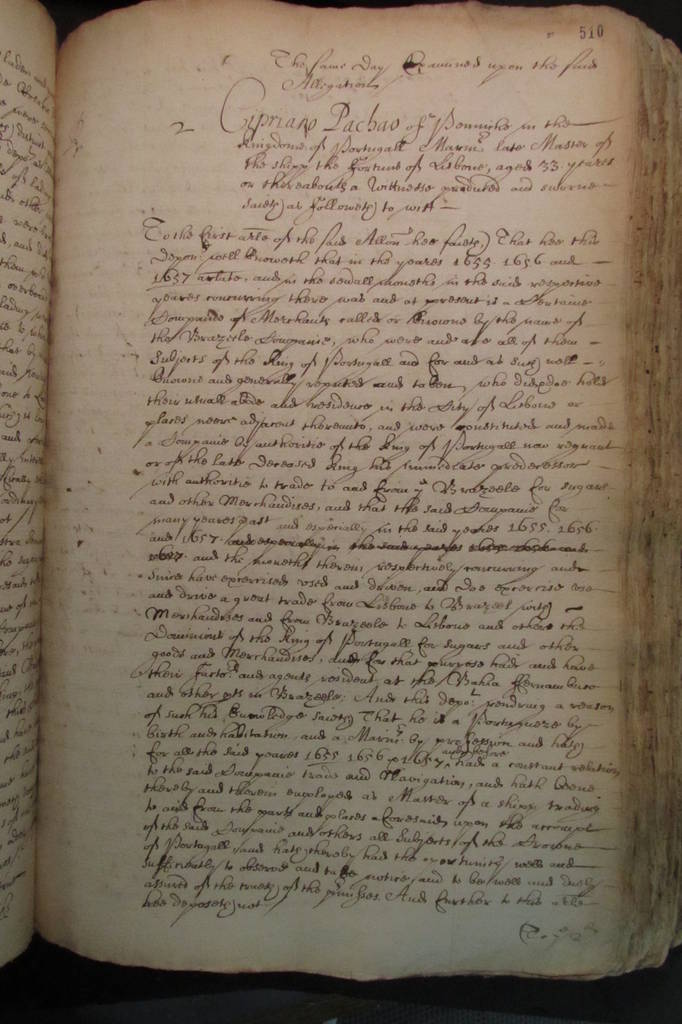 510
The same day Examined upon the said
Allegation
2
Cipriano Pachao of Penniche in the
Kingdome of Portugall Marinr late Master of
the shipp the Fortune of Lisbone, aged 33 yeares
or thereabouts a Witnesse produced and sworne
saieth as followeth to witt
To the first arle of the said Allon hee saieth, That hee this
depont well knoweth that in the yeares 1655 1656 and
1657 arlate, and in the severall moneths in the said respective
yeares concurring there was and at present is a Certaine
Companie of Merchants called or knowne by the name of
the Brazeele Companie, who were and are all of them
Subjects of the King of Portugall and for and as such well
knowne and generally reputed and taken, who did and doe hold
their usuall abode and residence in the City of Lisbone or
places neere adjacent thereunto, and were constituted and made
a Companie by authoritie of the King of Portugall now regnant
or of the late deceased King his immediate predecessor
with authoritie to trade to and from ye Brazeele for sugars
and other Merchandizes, and that the said Companie for
many yeares past and especially in the said yeares 1655. 1656
and 1657 and especially in the said yeares 1655 1656 and
1657. and the moneths therein respectively concurring and
since have exercised used and driven, and doe exercise use
and drive a great trade from Lisbone to Brazeel with
Merchandizes and from Brazeele to Lisbone and others the
Dominions of the King of Portugall for sugars and other
goods and Merchandizes, and for that purpose had and have
their Factors and agents resident at the Bahia Fernambuco
and other pts in Brazeele; And this depot rendring a reason
of such his knowledge saieth That he is a Portugueze by
birth and habitation and a Marinr by profession and hath
for all the said yeares 1655 1656 & 1657, had a constant relation
to the said Companie trade and Navigation, and hath beene
thereby and therein employed as Master of a shipp trading
to and from the parts and places aforesaid upon the accompt
of the said Companie and others all Subjects of the Crowne
of Portugall and hath thereby had the oportunity well and
sufficiently to observe and take notice and to be well and duely
assured of the trueth of the prmisses. And further to this arle
hee deposeth not
To ye 2d